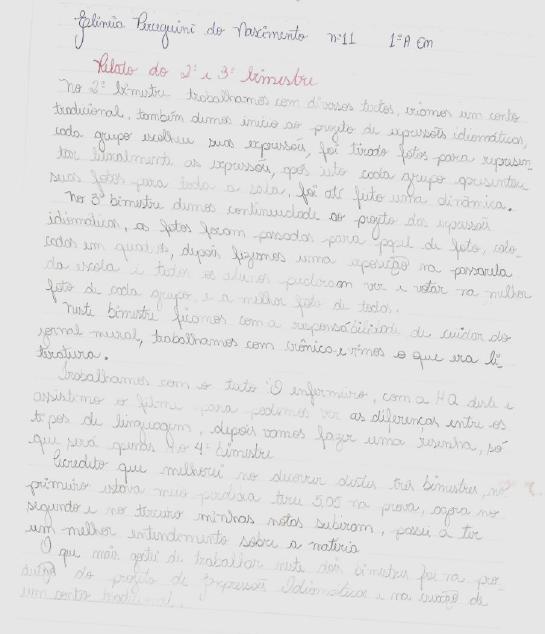 Perguini do Nascimento nº11 1ºA EM
Relato do 2º e 3º bimestre
No 2º bimestre trabalhamos com diversos textos, criamos um conto
tradicional, também demos início ao projeto de expressões idiomáticas,
cada grupo escolheu suas expressões, foi tirado fotos para represen-
tar literalmente as expressões, após isto cada grupo apresentou
suas fotos para toda a sala, foi até feito uma dinâmica.
No 3º bimestre demos continuidade ao projeto das expressões
idiomáticas, as fotos foram passadas para papel de foto, colo-
cadas em quadros, depois fizemos uma exposição na passarela
da escola e todos os alunos puderam ver e votar na melhor
foto de cada grupo, e a melhor foto de todas.
Neste bimestre ficamos com a responsabilidade de cuidar do
jornal mural, trabalhamos com crônica e vimos o que era li-
teratura.
Trabalhamos com o texto "O enfermeiro, com a HQ deste e
assistimo o filme para podermos ver as diferenças entre os
tipos de linguagem, depois vamos fazer uma resenha, só
que será para o 4º bimestre
Acredito que melhorei no decorrer destes três bimestres, no
primeiro estava meio perdida tirei 5,00 na prova, agora no
segundo e no terceiro minhas notas subiram, passei a ter
um melhor entendimento sobre a matéria
O que mais gostei de trabalhar neste dois bimestres foi na pro-
dução do projeto de Expressões Idiomáticas e na criação de
um conto tradicional.